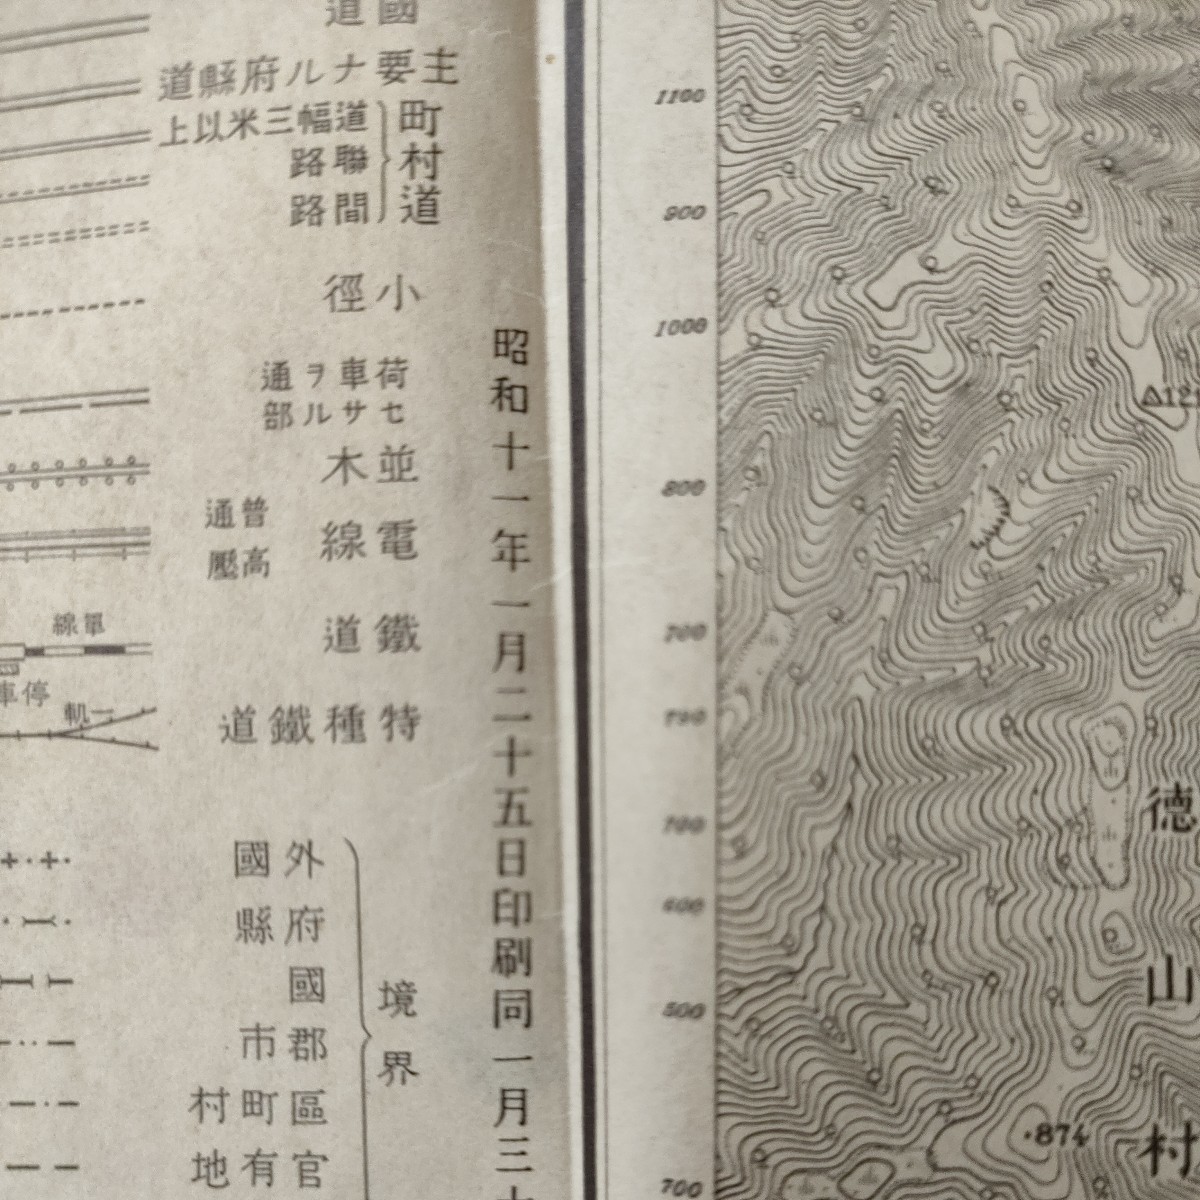 昭和十一年一月二十五日印刷同一月三十
國道
主要ナル府縣道
町村道
道幅三米以上
聯路
間路
小徑
荷車ヲ通
セサル部
並木
電線
普通
高壓
鐵道
單線
停車
特種鐵道
軌一
境界
外國
府縣
國
郡市
區町村
官有地
1100
900
1000
800
700
790
700
600
500
700
874
德山村